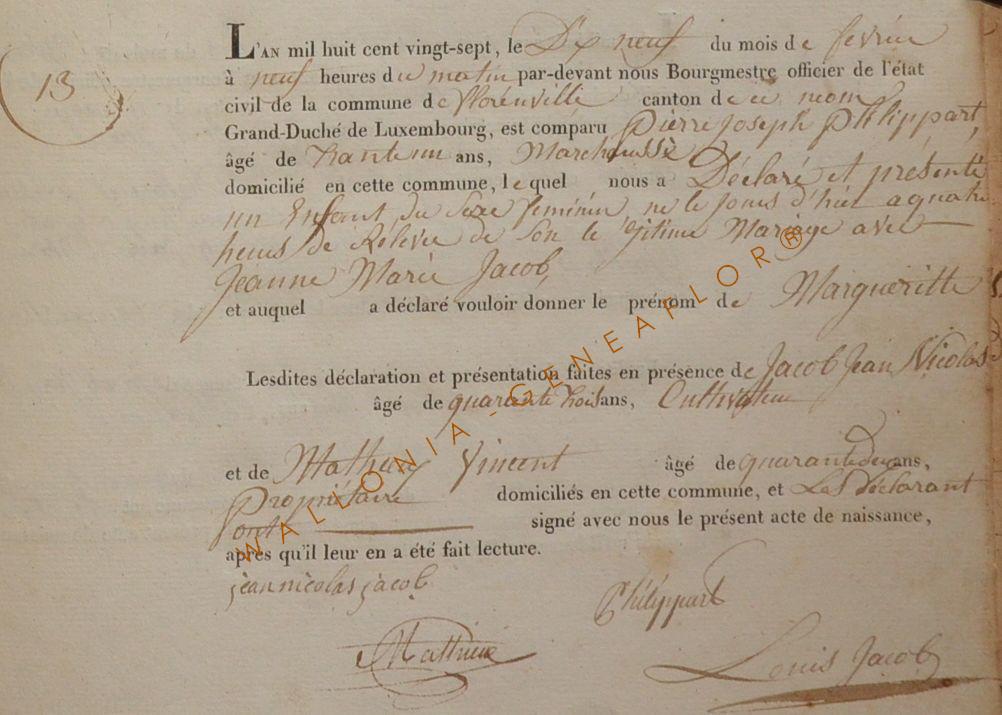 13
L'AN mil huit cent vingt-sept, le Dix neuf du mois de fevrier
à neuf heures du matin par-devant nous Bourgmestre officier de l'état
civil de la commune de florenville canton de ce nom
Grand-Duché de Luxembourg, est comparu Pierre Joseph Philippart,
âgé de trante un ans, Marchaussé
domicilié en cette commune, lequel nous a Déclaré et présenté
un Enfant du Sexe feminin né le jours d'hier a quatre
heurs de Relevee de Son le gitime Mariage avec
Jeanne Marie Jacob,
et auquel a déclaré vouloir donner le prénom de Margueritte
Lesdites déclaration et présentation faites en présence de Jacob Jean Nicolas
âgé de quarente trois ans, Cultivateur
et de Mathieu Vincent âgé de quarante deux ans,
Propriétaire domiciliés en cette commune, et Les Déclarant
ont signé avec nous le présent acte de naissance,
après qu'il leur en a été fait lecture.
jean nicolas jacob
Philippart
Mathieu
Louis Jacob
WALLONIA-GENEAFLOR®